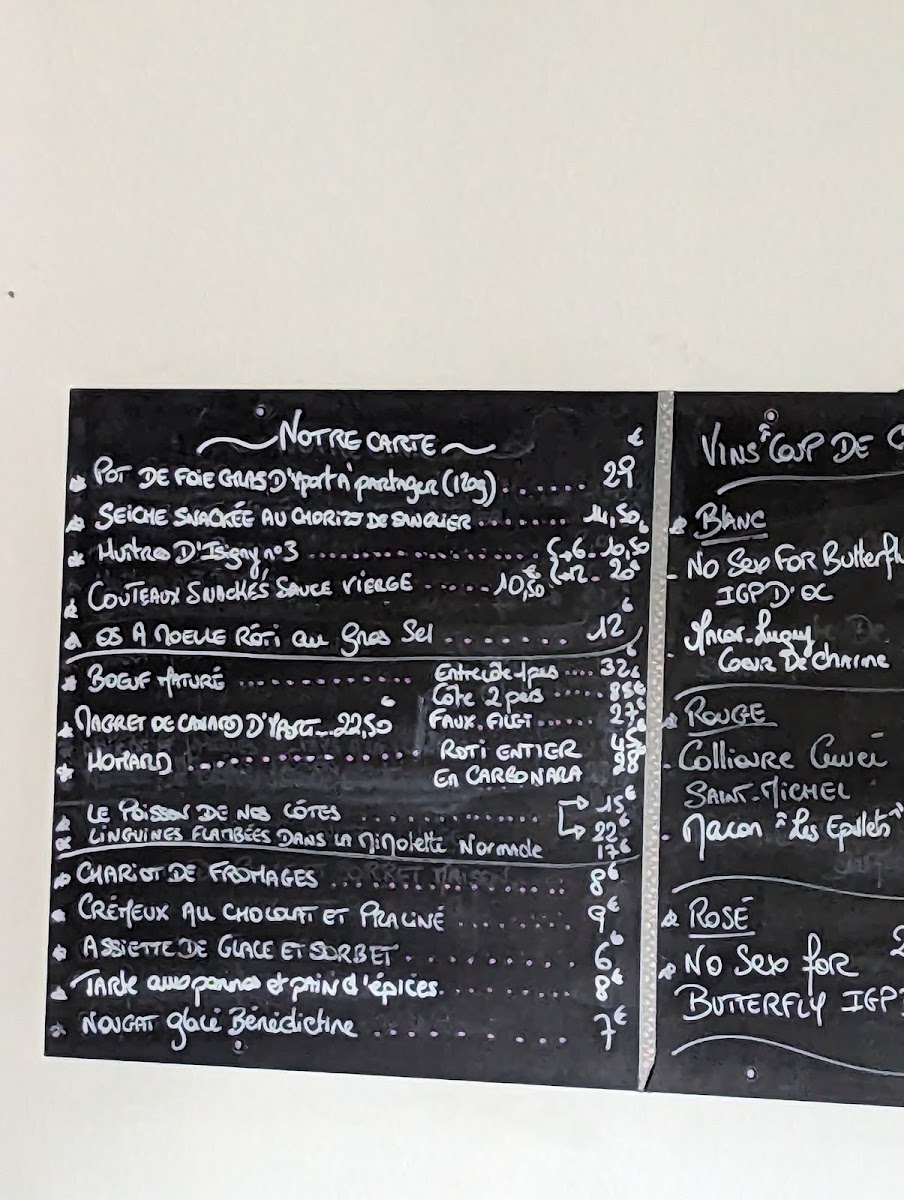 NOTRE CARTE €
POT DE FOIE GRAS D'Yport à partager (120g) ...... 29
SEICHE SNACKÉE AU CHORIZO DE SANGLIER ........ 14,50€
Huîtres D'Isigny n°3 .................. 6 - 10,50
12 - 20€
COUTEAUX SNACKÉS SAUCE VIERGE ...... 10,50€
OS A MOELLE RÔTI au Gros Sel ....... 12€
BOEUF MATURÉ ............ Entrecôte 1 pers .... 32€
Côte 2 pers ..... 85€
FAUX-FILET ...... 27€
MAGRET DE CANARD D'YPORT - 22,50
HOMARD ............ ROTI ENTIER 45€
En CARBONARA 28€
LE POISSON DE NOS CÔTES ............ 15€
22€
LINGUINES FLAMBÉES DANS LA MIMOLETTE Normande 17€
CHARIOT DE FROMAGES ............ 8€
CRÉMEUX AU CHOCOLAT ET PRALINÉ ........ 9€
ASSIETTE DE GLACE ET SORBET ......... 6€
Tarte aux pommes et pain d'épices ........ 8€
NOUGAT glacé Bénédictine ....... 7€
VINS COUP DE C
BLANC
- No Sex For Butterfly
IGP D'OC
- Macon-Lugny
Coeur De Charme
ROUGE
- Collioure Cuvée
SAINT-MICHEL
- Macon "Les Epillets"
ROSÉ
No Sex for
BUTTERFLY IGP